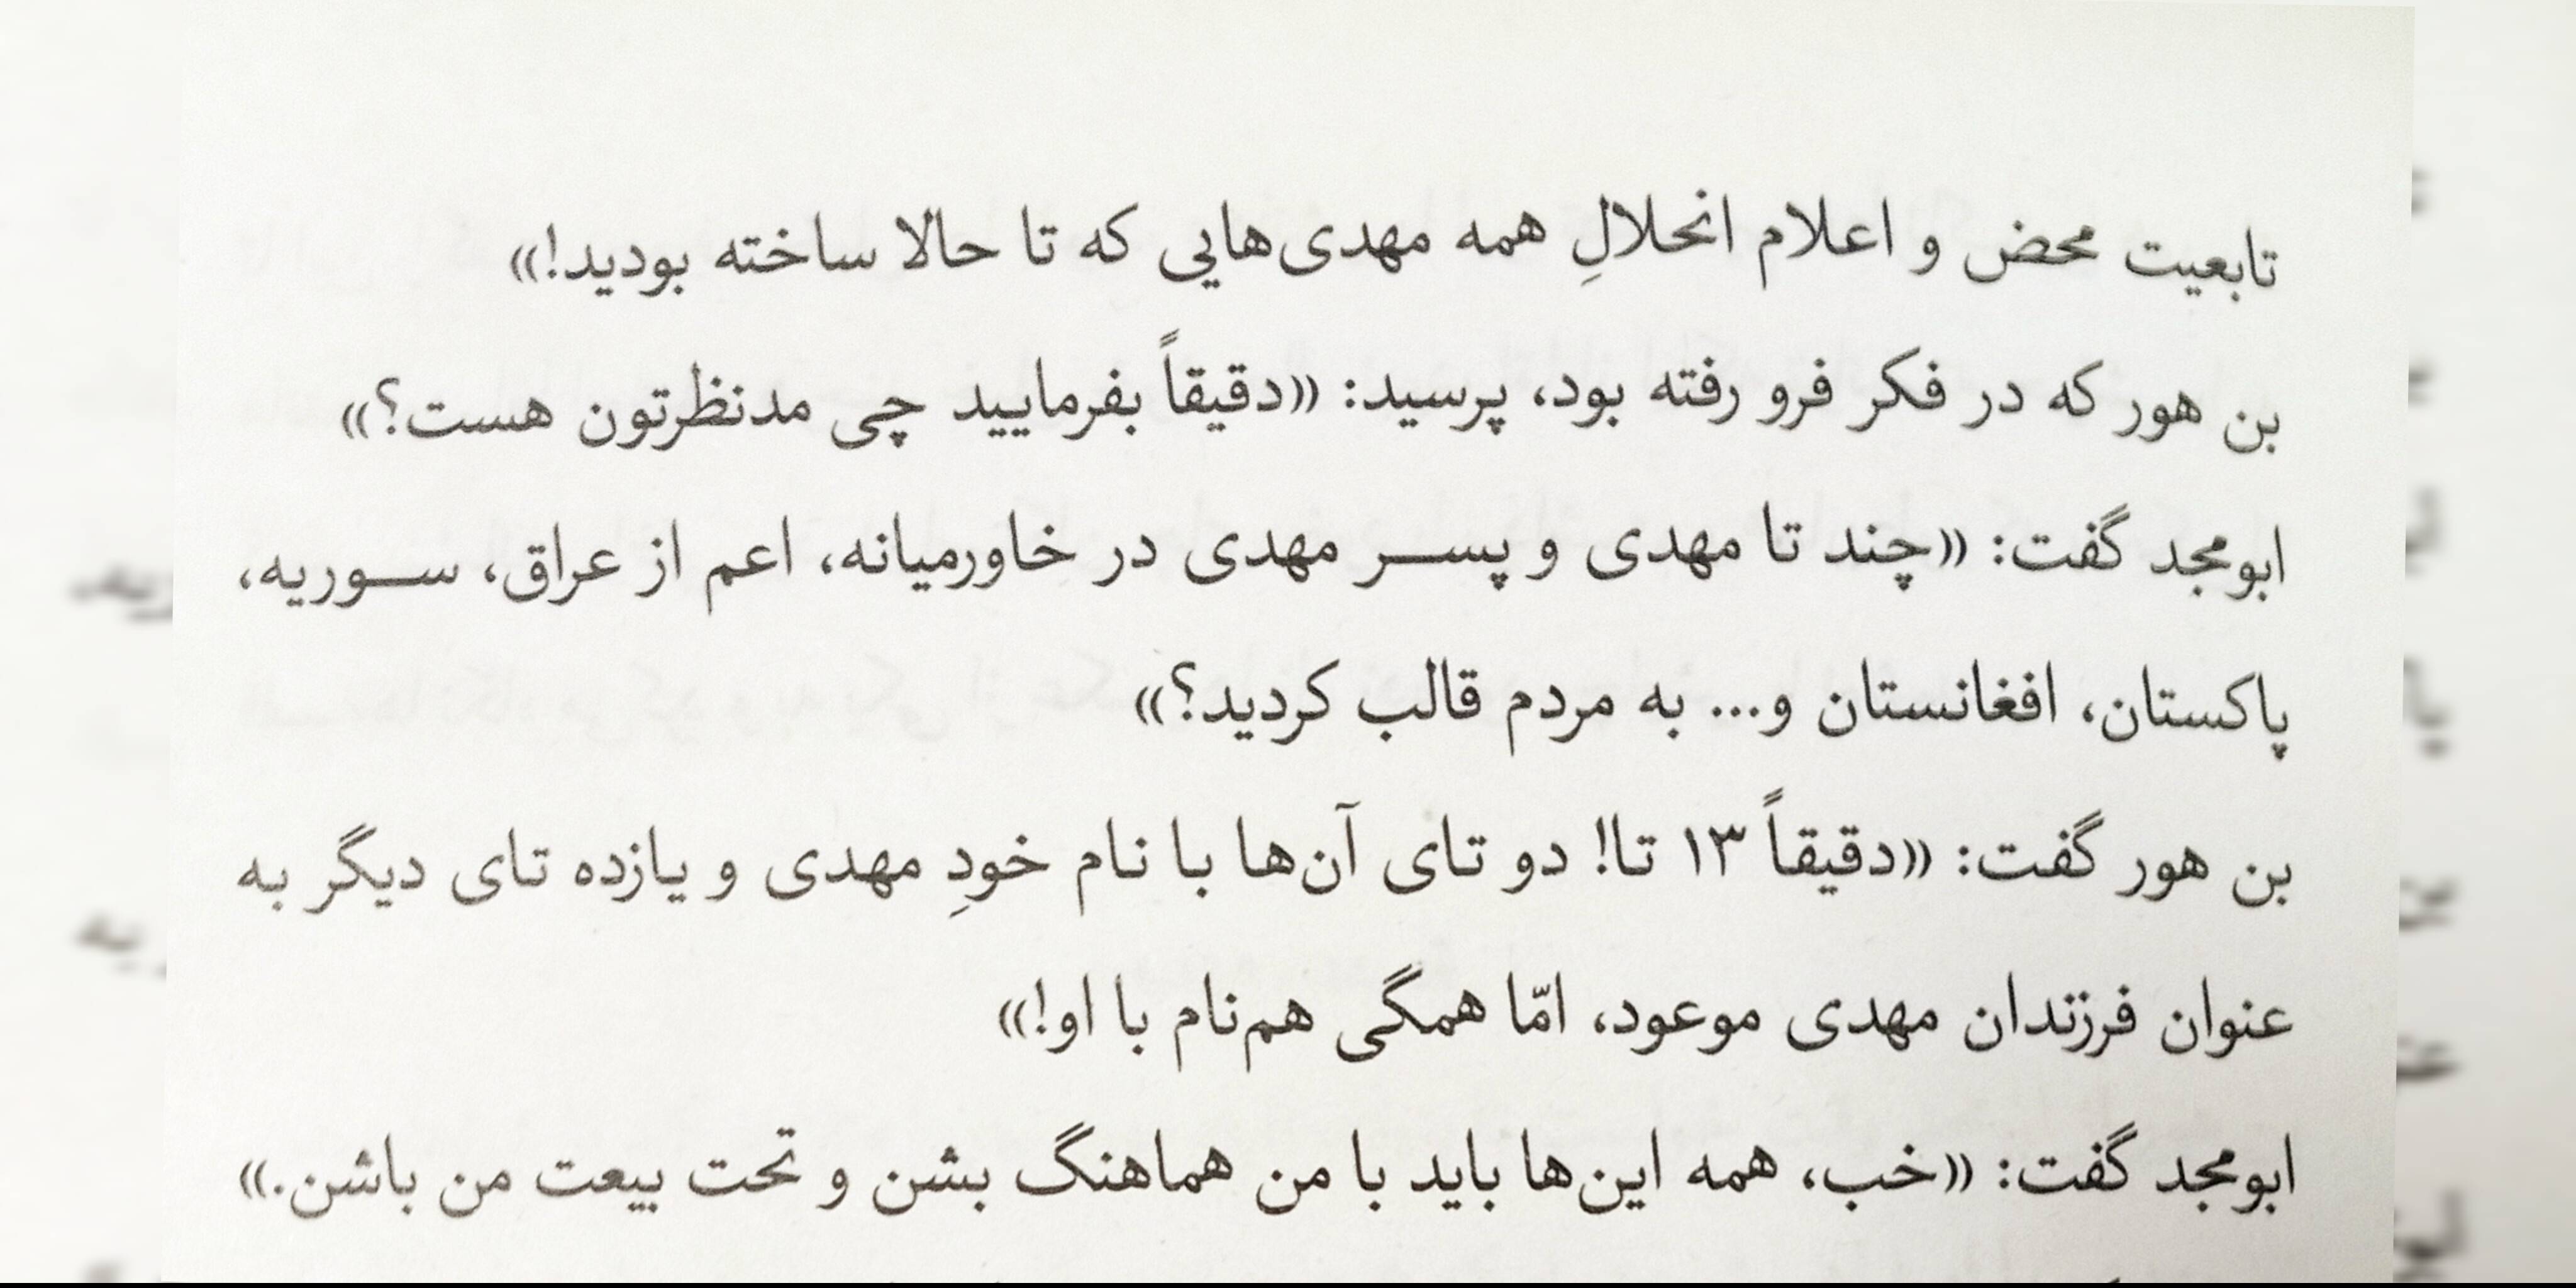 تابعیت محض و اعلام انحلالِ همه مهدی‌هایی که تا حالا ساخته بودید!»
بن هور که در فکر فرو رفته بود، پرسید: «دقیقاً بفرمایید چی مدنظرتون هست؟»
ابومجد گفت: «چند تا مهدی و پســر مهدی در خاورمیانه، اعم از عراق، ســوریه،
پاکستان، افغانستان و... به مردم قالب کردید؟»
بن هور گفت: «دقیقاً ۱۳ تا! دو تای آن‌ها با نام خودِ مهدی و یازده تای دیگر به
عنوان فرزندان مهدی موعود، امّا همگی هم‌نام با او!»
ابومجد گفت: «خب، همه این‌ها باید با من هماهنگ بشن و تحت بیعت من باشن.»